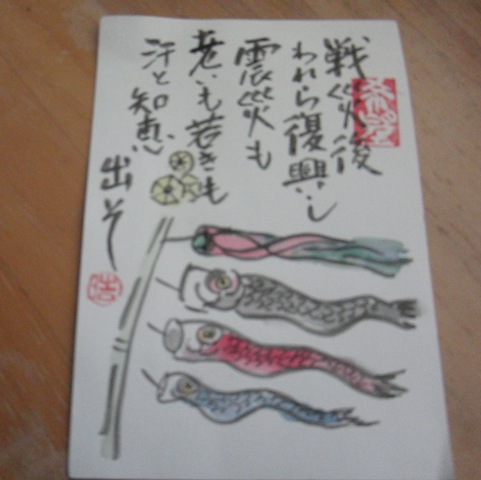 戦災後
われら復興し
震災も
老いも若きも
汗と知恵
出そう
希望
浩